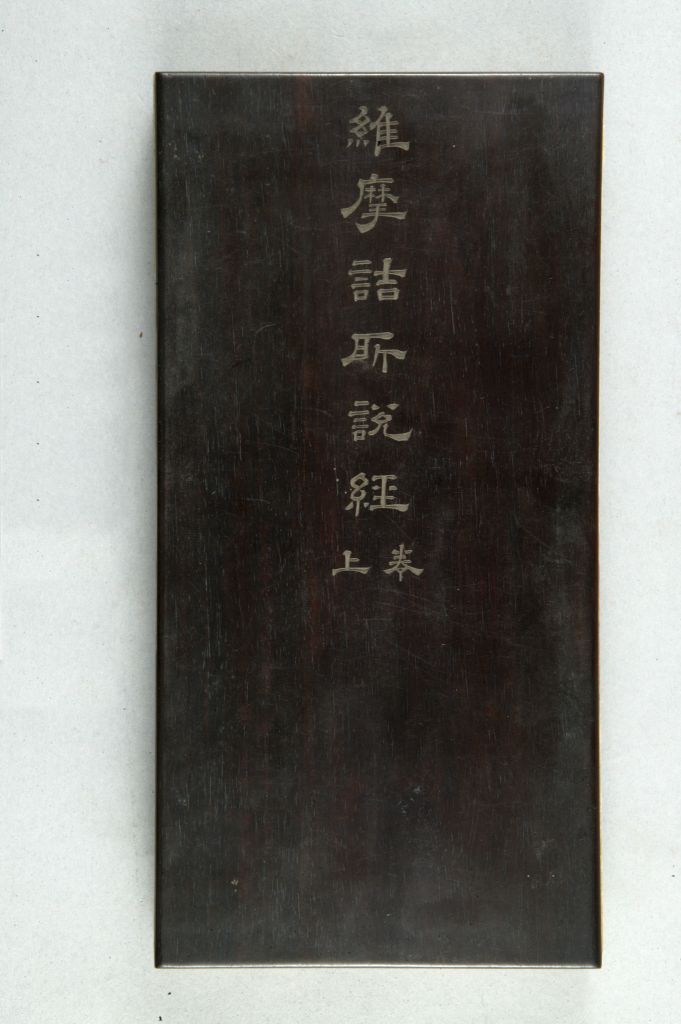 維摩詰所說經
卷上